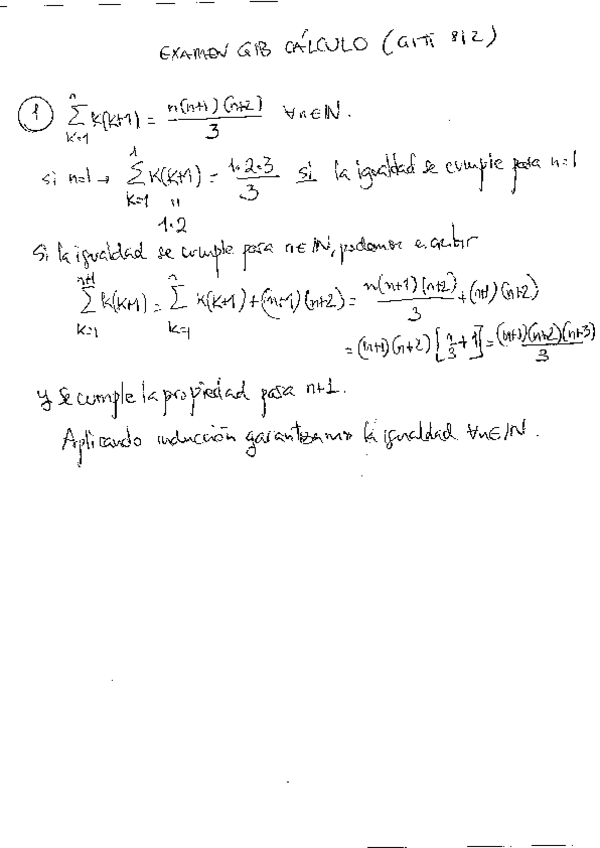 EXAMEN GIB CÁLCULO (GITI 812)
① ∑_{k=1}^{n} k(k+1) = n(n+1)(n+2)/3 ∀n∈ℕ.
si n=1 → ∑_{k=1}^{1} k(k+1) = 1·2·3/3 si la igualdad se cumple para n=1
"
1·2
Si la igualdad se cumple para n∈ℕ, podemos
∑_{k=1}^{n+1} k(k+1) = ∑_{k=1}^{n} k(k+1) + (n+1)(n+2) = n(n+1)(n+2)/3 + (n+1)(n+2)
= (n+1)(n+2)[n/3 + 1] = (n+1)(n+2)(n+3)/3
y se cumple la propiedad para n+1.
Aplicando inducción garantizamos la igualdad ∀n∈ℕ.